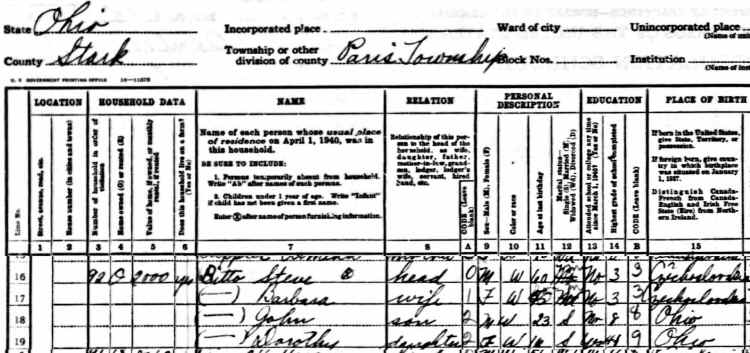 State Ohio Incorporated place Ward of city Unincorporated place
County Stark Township or other division of county Paris Township Block Nos. Institution
U. S. GOVERNMENT PRINTING OFFICE
LOCATION HOUSEHOLD DATA NAME RELATION PERSONAL DESCRIPTION EDUCATION PLACE OF BIRTH
Line No.
Street, avenue, road, etc.
House number (in cities and towns)
Number of household in order of visitation
Home owned (O) or rented (R)
Value of home, if owned, or monthly rental, if rented
Does this household live on a farm? (Yes or No)
Name of each person whose usual place of residence on April 1, 1940, was in this household.
BE SURE TO INCLUDE:
1. Persons temporarily absent from household. Write "Ab" after names of such persons.
2. Children under 1 year of age. Write "Infant" if child has not been given a first name.
Enter ⓧ after name of person furnishing information.
Relationship of this person to the head of the household, as wife, daughter, father, mother-in-law, grandson, lodger, lodger's wife, servant, hired hand, etc.
CODE (Leave blank)
Sex—Male (M), Female (F)
Color or race
Age at last birthday
Marital status—Single (S), Married (M), Widowed (Wd), Divorced (D)
Attended school or college any time since March 1, 1940? (Yes or No)
Highest grade of school completed
CODE (Leave blank)
If born in the United States, give State, Territory, or possession.
If foreign born, give country in which birthplace was situated on January 1, 1937.
Distinguish Canada-French from Canada-English and Irish Free State (Eire) from Northern Ireland.
1 2 3 4 5 6 7 8 A 9 10 11 12 13 14 B 15
16 92 O 2000 yes Bitto Steve ⓧ head 0 M W 60 No 3 3 Czechoslovakia
17 (—) Barbara wife 1 F W No 3 3 Czechoslovakia
18 (—) John son 2 M W 23 S No 8 8 Ohio
19 (—) Dorothy daughter 2 F W S 9 Ohio